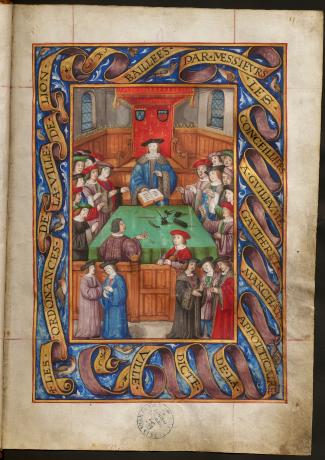 LES ORDONANCES DE LA VILLE DE LION
BAILLEES PAR MESSIEVRS LES
CONCEILLIERS A GVILLAVME
GAVTHERET MARCHAT
APPOTICAIRE
DE LA DICTE VILLE